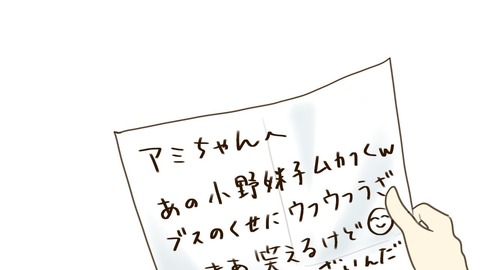 アミちゃんへ
あの小野妹子ムカつくw
ブスのくせにウフウフうざ
まあ笑えるけど
ざいんだ